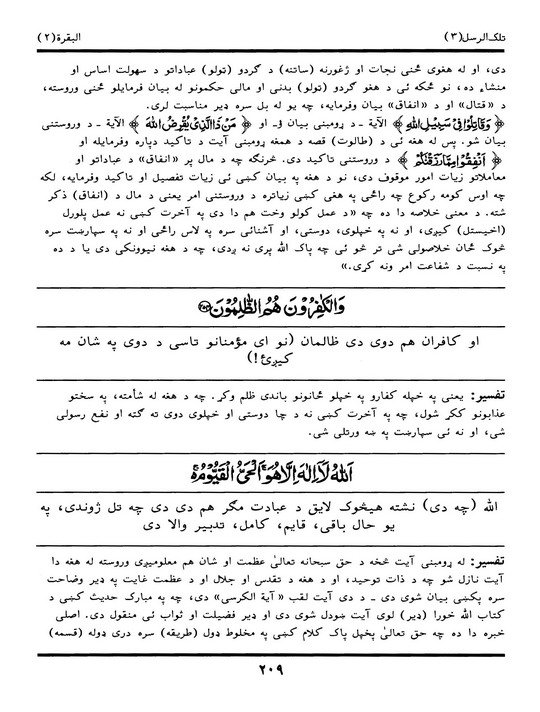 تلک الرسل(۳) البقرة(۲)
دی، او له هغوی ځنی نجات او ژغورنه (ساتنه) د ګردو (ټولو) عباداتو د سهولت اساس او
منشاء ده، نو ځکه ئی د هغو ګردو (ټولو) بدنی او مالی حکمونو له بیان فرمایلو ځنی وروسته،
د «قتال» او د «انفاق» بیان وفرمایه، چه یو له بل سره ډیر مناسبت لری.
﴿ وَقَاتِلُوْا فِیْ سَبِیْلِ اللهِ ﴾ الآیة ـ د ړومبنی بیان ؤ او ﴿ مَنْ ذَا الَّذِیْ یُقْرِضُ اللهَ ﴾ الآیة ـ د وروستنی
بیان شو. پس له هغه ئی د (طالوت) قصه د همغه ړومبنی آیت د تاکید دپاره وفرمایله او
﴿ اَنْفِقُوْا مِمَّا رَزَقْنٰکُمْ ﴾ د وروستنی تاکید دی. څرنګه چه د مال پر «انفاق» د عباداتو او
معاملاتو زیات امور موقوف دی، نو د هغه په بیان کښی ئی زیات تفصیل او تاکید وفرمایه، لکه
چه اوس کومه رکوع چه راځی په هغی کښی زیاتره د وروستنی امر یعنی د مال د (انفاق) ذکر
شته. د معنی خلاصه دا ده چه «د عمل کولو وخت هم دا دی په آخرت کښی نه عمل پلورل
(اخیستل) کیږی، او نه په خپلوی، دوستی، او آشنائی سره په لاس راځی او نه په سپارښت سره
څوک ځان خلاصولی شی تر څو ئی چه پاک الله پری نه ږدی، چه د هغه نیوونکی دی یا د ده
په نسبت د شفاعت امر ونه کړی.»
وَالْکٰفِرُوْنَ هُمُ الظّٰلِمُوْنَ ﴿۲۵۴﴾
او کافران هم دوی دی ظالمان (نو ای مؤمنانو تاسی د دوی په شان مه
کیږئ!)
تفسیر: یعنی په خپله کفارو په خپلو ځانونو باندی ظلم وکړ. چه د هغه له شأمته، په سختو
عذابونو ککړ شول، چه په آخرت کښی نه د چا دوستی او خپلوی دوی ته ګټه او نفع رسولی
شی، او نه ئی سپارښت په ښه ورتلی شی.
اَللهُ لَآ اِلٰهَ اِلَّا هُوَ ۚ اَلْحَیُّ الْقَیُّوْمُ ۚ
الله (چه دی) نشته هیڅوک لایق د عبادت مګر هم دی دی چه تل ژوندی، په
یو حال باقی، قایم، کامل، تدبیر والا دی
تفسیر: له ړومبنی آیت څخه د حق سبحانه تعالیٰ عظمت او شان هم معلومیږی وروسته له هغه دا
آیت نازل شو چه د ذات توحید، او د هغه د تقدس او جلال او د عظمت غایت په ډیر وضاحت
سره پکښی بیان شوی دی ـ د دی آیت لقب «آیة الکرسی» دی، چه په مبارک حدیث کښی د
کتاب الله خورا (ډیر) لوی آیت ښودل شوی دی او ډیر فضیلت او ثواب ئی منقول دی. اصلی
خبره دا ده چه حق تعالیٰ پخپل پاک کلام کښی په مخلوط ډول (طریقه) سره دری ډوله (قسمه)
۲۰۹